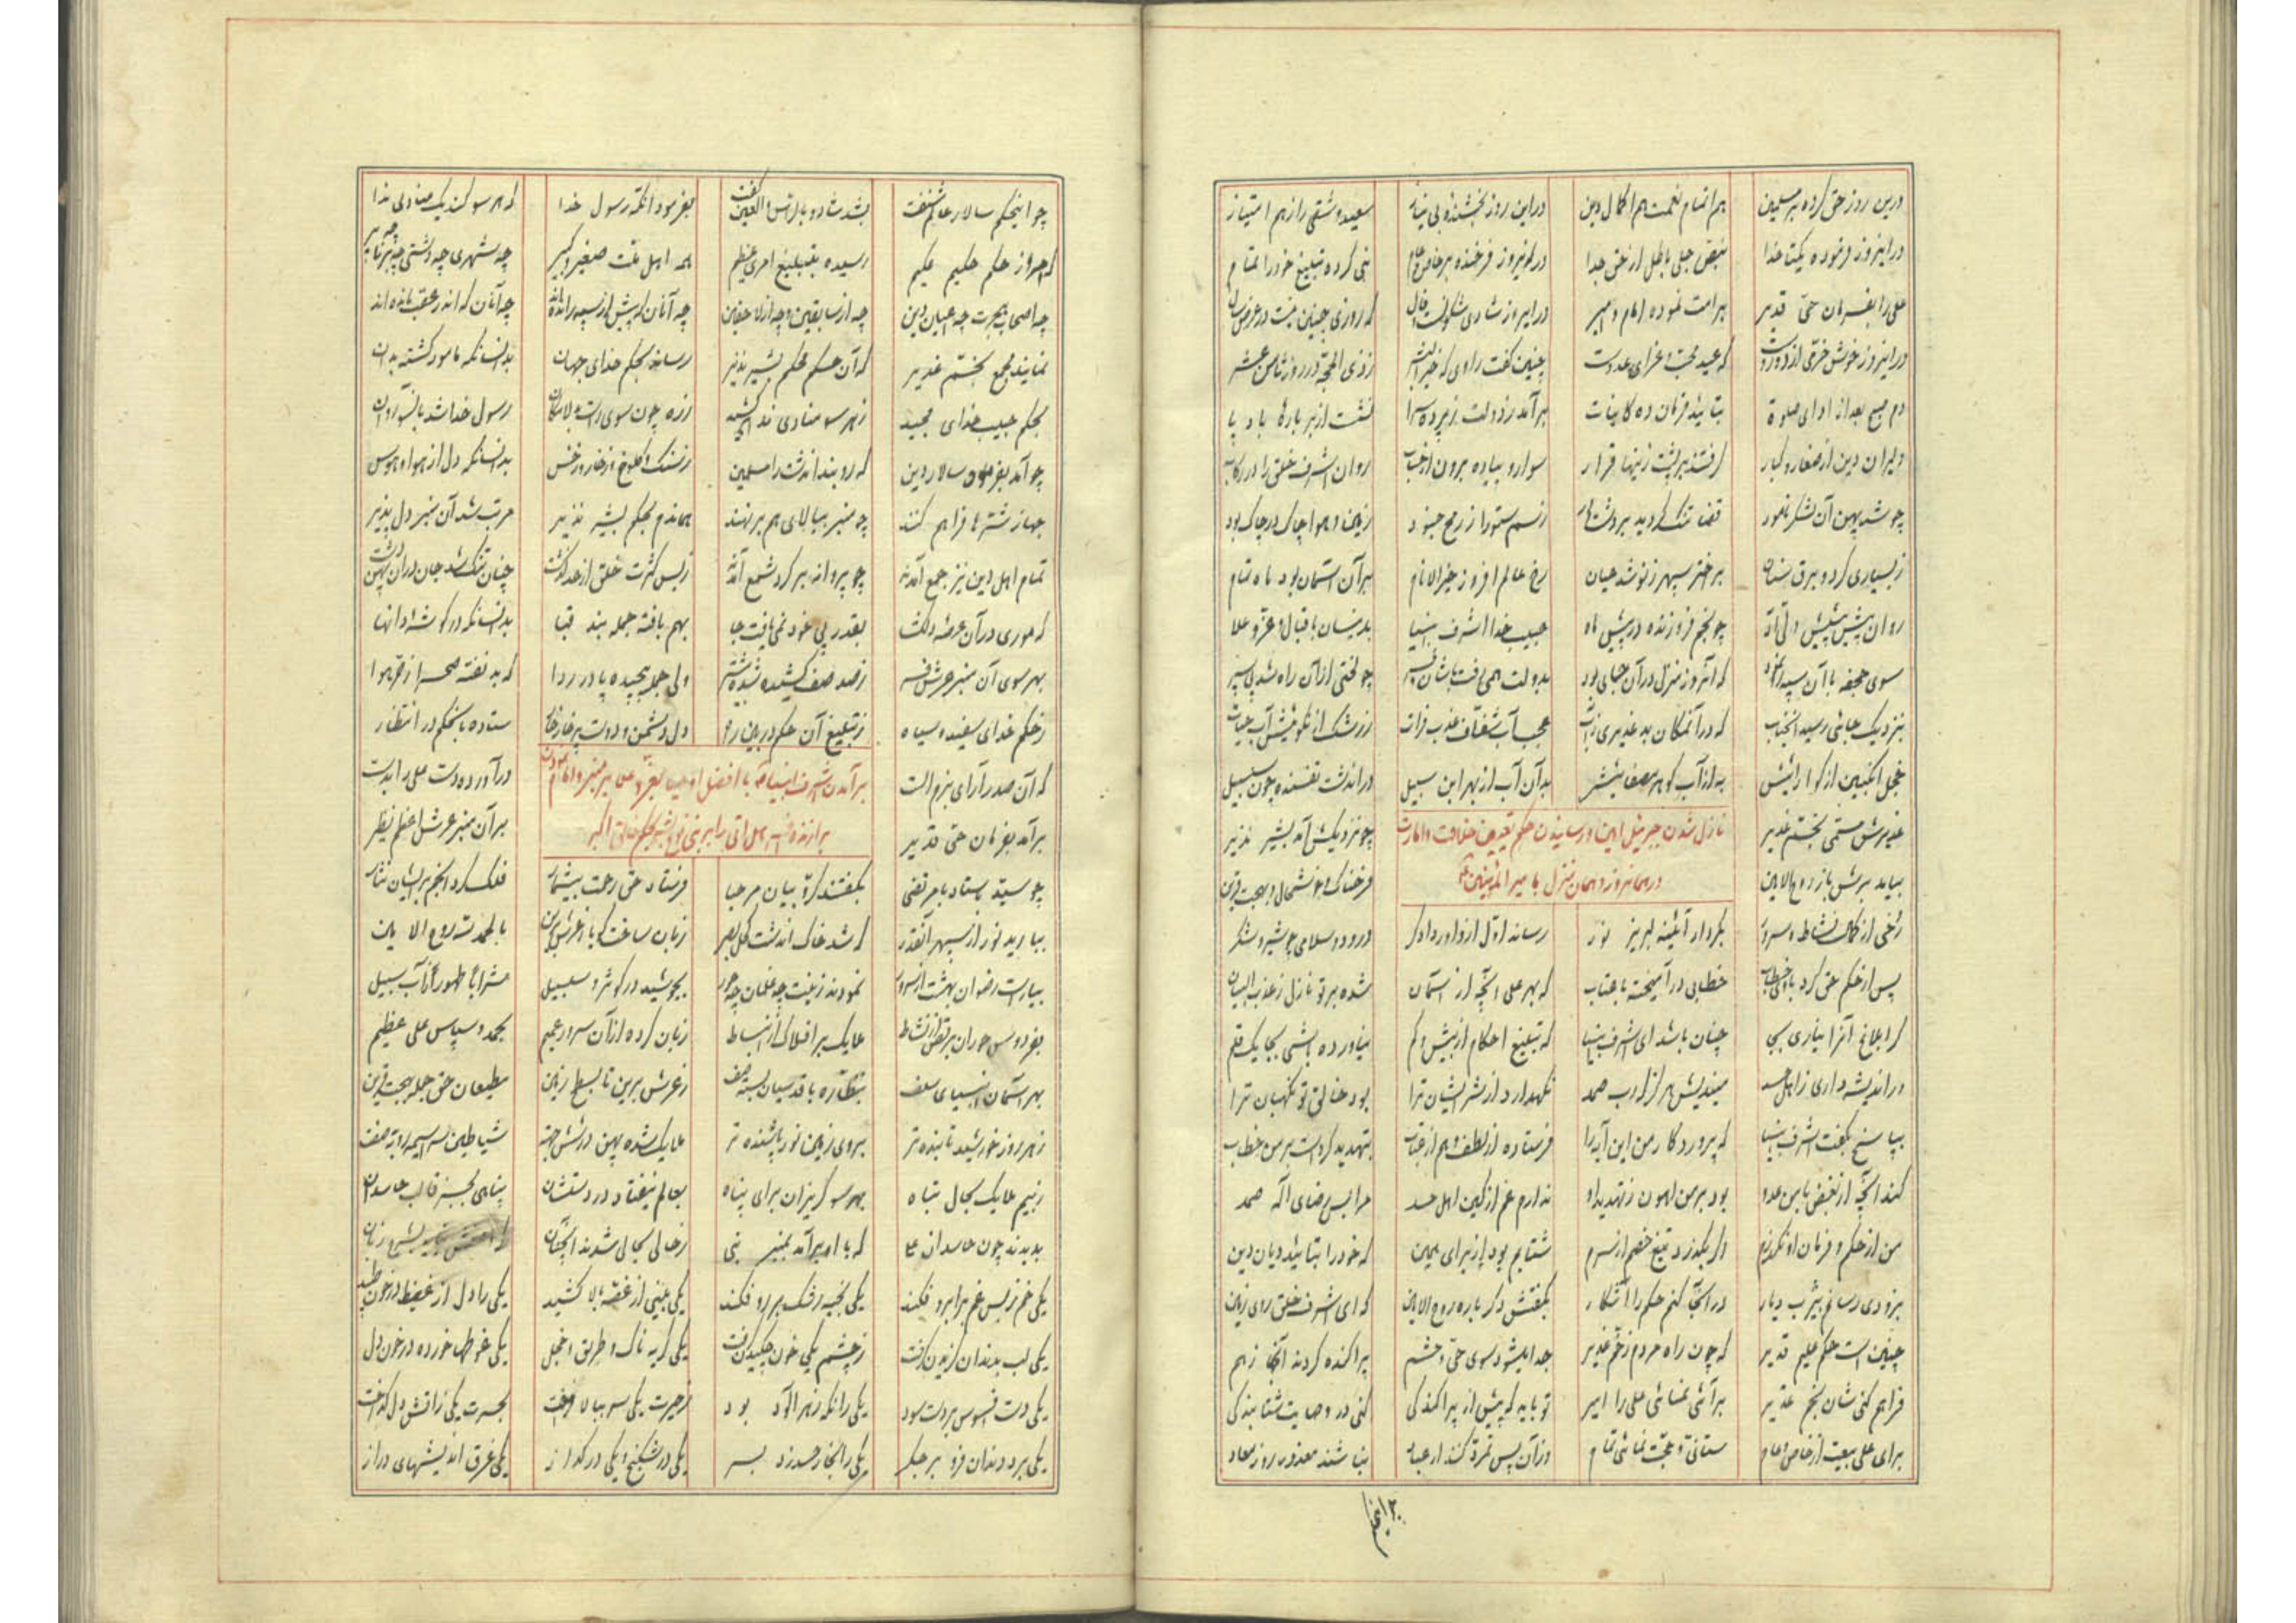 درین روز حق کرده بر مسلمین هم اتمام نعمت هم اکمال دین دراین روز بخشنده بی نیاز سعید و شقی را ز هم امتیاز
دراینروز فرموده یکتا خدا بنص جلی باطل از حق جدا درین روز فرخنده بر خاص و عام نبی کرده تبلیغ خود را تمام
علی را بفرمان حی قدیر بر امت نموده امام و امیر دراینروز شادی که روزی چنین نیست در
دراینروز خوش خرمی از که عید محب و عزای عدوست چنین گفت راوی که خیر البشر ز ذی الحجه در روز ثامن عشر
دم صبح بعد از ادای صلوة بتائید فرمان ده کاینات برآمد ز دولت ز پرده سرا نشست از بر باره باد پا
دلیران دین از صغار و کبار گرفتند بر پشت زینها قرار سوار و پیاده برون از حساب روان اشرف خلق را در رکاب
چو شد پهن آن لشکر نامور قضا تنک گردید بر دشت ز سم ستور از جنود زمین و هوا چاک در چاک بود
ز بسیاری گرد و برق سنان بر اختر سپهر ز نو شد عیان رخ عالم افروز خیر الانام بر آن آسمان بود ماه تمام
روان پیش پیشش ولی اله چو نجم فروزنده در پیش ماه حبیب خدا اشرف انبیا بدینسان باقبال و عز و علا
سوی جحفه با آن سپه که آنروز منزل در آن جای بود بدولت همی رفت چو لختی از آن راه شد پی سپر
بنزدیک جائی رسید آنجناب که در آنمکان بد غدیری ز آب عجب آب شفاف عذب فرات ز رشک آب حیات
خجل انگبین از گوارائیش به از آب گوهر مصفائیش بدآن آب از بهر ابن سبیل در آندشت تفسنده چون سلسبیل
غدیرش مسمی بختم غدیر چو نزدیکش آمد بشیر نذیر
نازل شدن جبرئیل امین و رسانیدن حکم تعیین خلافت و امارت
در همانروز و همان منزل با امیر المؤمنین
بیامد برش باز روح الامین فرحناک و خوشحال و بهجت قرین
رخی از کمال نشاط و سرور بکردار آئینه لبریز نور رساند اول از داور دادگر درود و سلامی چو شیر و شکر
پس از حکم حق کرد با خطاب خطابی درآمیخته با عتاب که بهر علی آنچه از آسمان شده بر تو نازل
گر ابلاغ آنرا نیاری بجی چنان باشد ای اشرف انبیا که تبلیغ احکام از بیش و کم نیاورده باشی بجا یک قلم
ور اندیشه داری ز اهل حسد میندیش هرگز که رب صمد نگهدارد از شر ایشان ترا بود خالق تو نگهبان ترا
بپاسخ بگفت اشرف انبیا که پروردگار من این آیه را فرستاده از لطف و هم از عتاب بتهدید کرده است بر من خطاب
کند آنچه از بغض با من عدو بود بر من اهون ز تهدید او ندارم غم از کین اهل حسد مرا بس رضای اله صمد
من از حکم و فرمان او نگذرم اگر بگذرد تیغ خصم از سرم شتابم بود از برای همین که خود را بتائید دیان دین
بزودی رسانم بیثرب دیار در آنجا کنم حکم را آشکار بگفتش دگر باره روح الامین که ای اشرف خلق روی زمین
چنین است حکم علیم قدیر که چون راه مردم ز خم غدیر جدا میشود سوی حی و حشم پراکنده گردند آنجا ز هم
فراهم کنی شان بخم غدیر برآئی نمائی علی را امیر تو باید که پیش از پراکندگی کنی در وصایت شتابندگی
برای علی بیعت از خاص و عام ستانی و حجت نمائی تمام وزآن پس تمرد کنند ار عباد نباشند معذور روز معاد
چو اینحکم
چو اینحکم سالار عالم شنفت بشد شاد و بالرأس و العین گفت بفرمود آنگه رسول خدا که هر سو کند یک منادی ندا
که امر از حکم حکیم علیم رسیده بتبلیغ امری عظیم همه اهل ملت صغیر و کبیر چه شهری چه دشتی چه برنا چه پیر
چه اصحاب هجرت چه اعیان دین چه از سابقین و چه از لاحقین چه آنان که پیش از سپه رانده اند چه آنان که اندر عقب مانده اند
نمایند مجمع بختم غدیر که آن حکم محکم بشیر نذیر رساند بحکم خدای جهان بدانسانکه مامور گشته بدان
بحکم حبیب خدای مجید ز هر سو منادی ندا برکشید رسول خدا شد
چو آمد بفرمان سالار دین که روبند آندشت را مسلمین ز سنک و کلوخ و ز خار و ز خس بدانسانکه دل از هوا و هوس
جهاز شترها فراهم کنند چو منبر ببالای هم برنهند همانم بحکم بشیر نذیر مرتب شد آن منبر دل پذیر
تمام اهل دین نیز جمع آمدند چو پروانه بر گرد شمع آمدند ز بس کثرت خلق از حد گذشت چنان تنک شد جان در آن پهن دشت
که موری در آن عرصه دلگشا بقدر پی خود نمی یافت جا بهم بافته جمله بند قبا بدانسانکه در گوشها دانها
بهر سوی آن منبر عرش فر ز صد صف کشیده شده ولی جمله پیچیده پا در ردا که بد تفته صحرا ز حر هوا
ز حکم خدای سفید و سیاه ز تبلیغ آن حکم دل دشمن و دوست ستاده باینحکم در انتظار
که آن صدر آرای بزم الست درآورده دست علی را بدست
برآمدن اشرف انبیا با افضل اوصیا بعد علی بر منبر
برآمد بفرمان حی قدیر بر آن منبر عرش اعظم نظیر
چو سید باستاد با مرتضی بگفتند کروبیان مرحبا فرستاد حق رحمت بیشمار فلک کرد انجم بر ایشان نثار
ببارید نور از سپهر آنقدر که شد خاک آندشت کحل بصر زبان ساخت گویا بالحمد لله روح الامین
بیاراست رضوان بهشت از سرور نمودند زینت چه غلمان چه حور بجوشید در کوثر و سلسبیل شرابا طهورا ز آب سبیل
بفردوس حوران برقص از نشاط ملایک بر افلاک از انبساط زبان کرده از آن سرور عمیم بحمد و سپاس علی عظیم
بهر آسمان انبیای سلف بنظاره با قدسیان بسته صف ز عرش برین تا بسیط زمین مطیعان حق جمله بهجت قرین
ز هر روز خورشید تابنده تر بروی زمین نور پاشنده تر ملایک شده پهن در شش جهت شیاطین
ز بیم ملایک بحال تباه بهر سو گریزان برای پناه بعالم نیفتاد در دستشان پناهی بجز قالب حاسدان
بدیدند چون حاسدان علی که با او برآمد بمنبر نبی ز حالی بحالی شدند آنچنان
یکی خم ز بس غم بر ابرو فکند یکی بخیه رشک بر رو فکند یکی بینی از غصه بالا کشید یکی را دل از غیظ در خون طپید
یکی لب بدندان گزیدن گرفت ز چشم یکی خون چکیدن گرفت یکی گریه ناک و طریق خجل یکی غوطها خورده در خون دل
یکی دست افسوس بر دست سود یکی را نگه زهر آلود بود ز حیرت یکی سر ببالا بحسرت یکی ز آتش دل گداخت
یکی برد دندان فرو بر جگر یکی را حسد زد بسر یکی در شکنج و یکی در گداز یکی غرق اندیشهای دراز